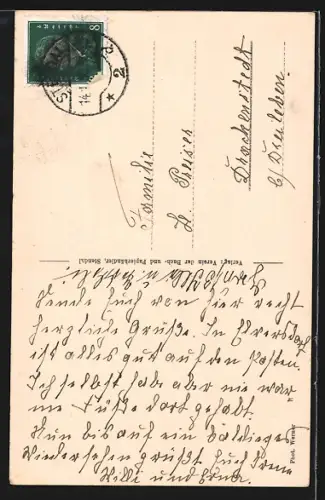 8
14.1
* 2
Familie
H. Preiss
Drackenstedt
b/ Dreileben.
Verlag: Verein der Buch- und Papierhändler, Stendal
Phot. Werner
Sende Euch von hier recht
herzliche Grüße. In Elversdorf
ist alles gut auf den Posten.
Ich selbst hab aber nie war-
me Füße dort gehabt.
Nun bis auf ein baldiges
Wiedersehen grüßt Euch
Willi und Erna.